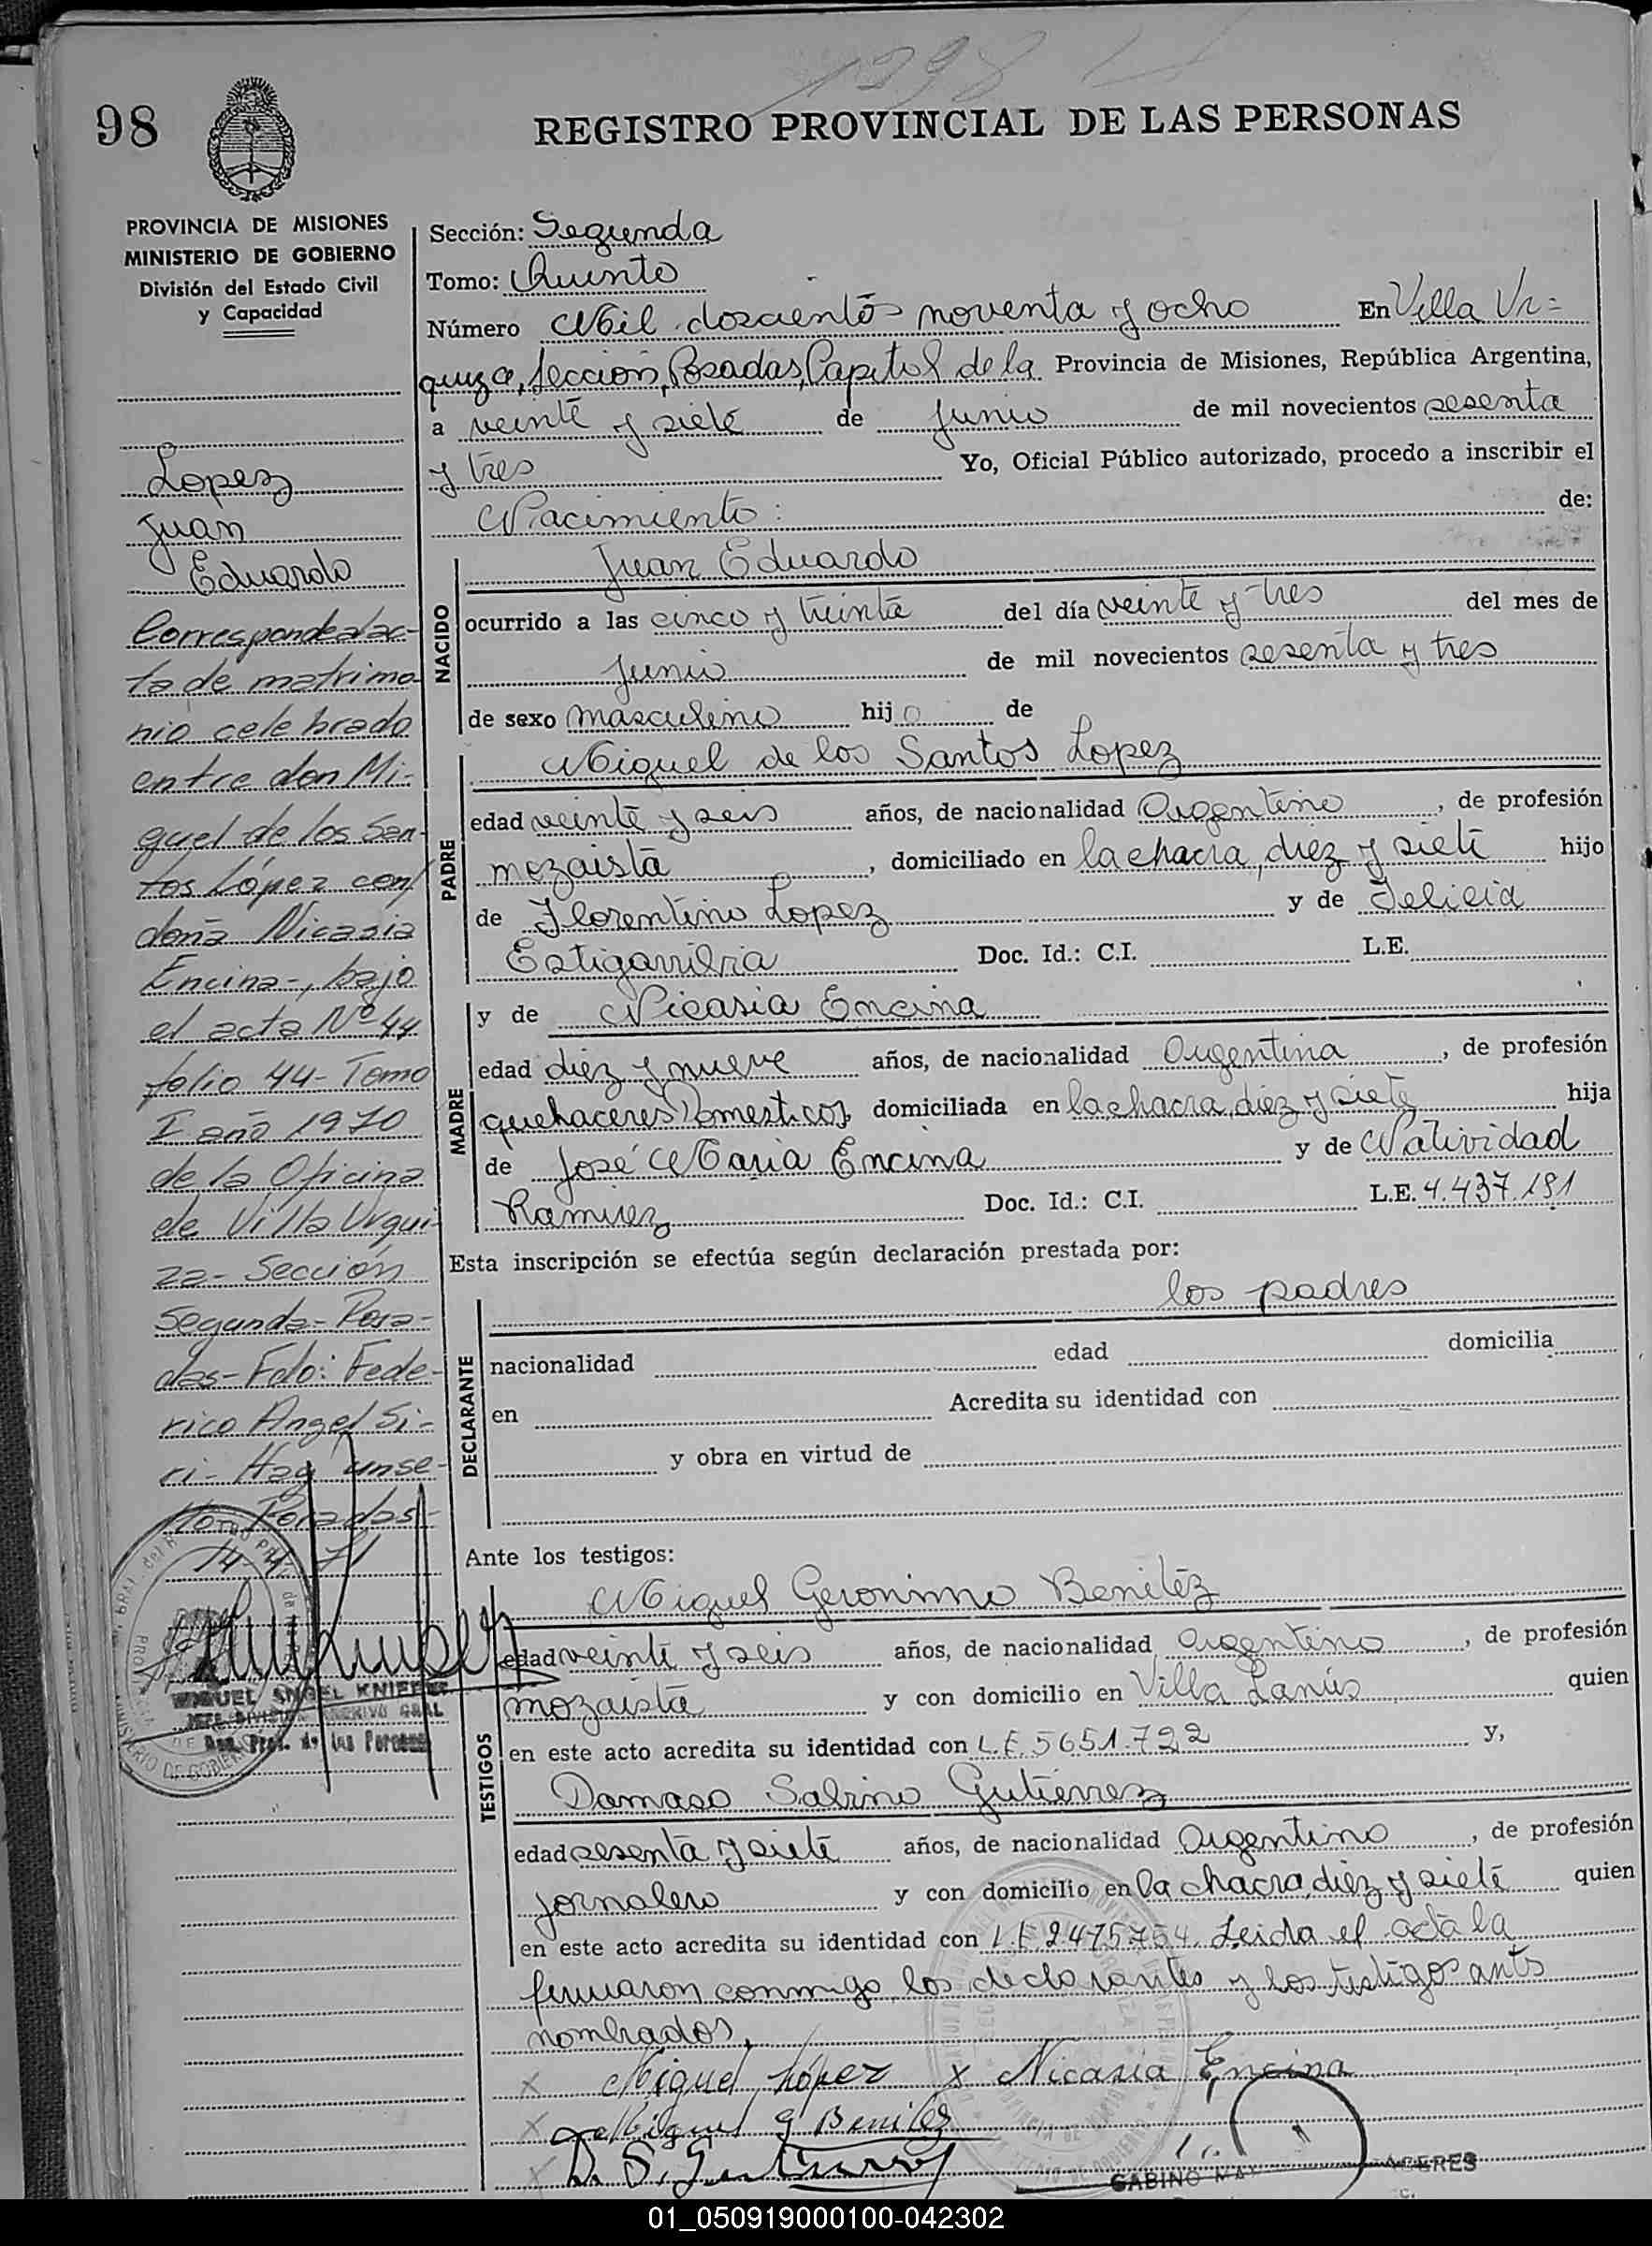 1298
98
REGISTRO PROVINCIAL DE LAS PERSONAS
PROVINCIA DE MISIONES
MINISTERIO DE GOBIERNO
División del Estado Civil
y Capacidad
Lopez
Juan
Eduardo
Corresponde al ac-
ta de matrimo
nio celebrado
entre don Mi-
guel de los San-
tos López con
doña Nicasia
Encina-, bajo
el acta Nº 44
folio 44- Tomo
I año 1970
de la Oficina
de Villa Urqui
za- Sección
Segunda- Posa-
das- Fdo: Fede-
rico Angel Si-
ri- Hay un se-
llo. Posadas
14-4-71
MIGUEL ANGEL KNIE
JEFE DIVISION ARCHIVO GRAL
Prov. de las Personas
Sección: Segunda
Tomo: Quinto
Número Mil doscientos noventa y ocho En Villa Ur=
quiza, Seccion, Posadas, Capital de la Provincia de Misiones, República Argentina,
a veinte y siete de Junio de mil novecientos sesenta
y tres Yo, Oficial Público autorizado, procedo a inscribir el
Nacimiento: de:
NACIDO
Juan Eduardo
ocurrido a las cinco y treinta del día veinte y tres del mes de
Junio de mil novecientos sesenta y tres
de sexo masculino hijo de
PADRE
Miguel de los Santos Lopez
edad veinte y seis años, de nacionalidad Argentino, de profesión
mozaista, domiciliado en la chacra, diez y siete hijo
de Florentino Lopez y de Felicia
Estigarribia Doc. Id.: C.I. L.E.
MADRE
y de Nicasia Encina
edad diez y nueve años, de nacionalidad Argentina, de profesión
quehaceres Domesticos domiciliada en la chacra, diez y siete hija
de José Maria Encina y de Natividad
Ramirez Doc. Id.: C.I. L.E. 4.437.191
Esta inscripción se efectúa según declaración prestada por:
DECLARANTE
los padres
nacionalidad edad domicilia
en Acredita su identidad con
y obra en virtud de
Ante los testigos:
TESTIGOS
Miguel Geronimo Benitez
edad veinte y seis años, de nacionalidad argentino, de profesión
mozaista y con domicilio en Villa Lanús quien
en este acto acredita su identidad con L.E. 5651.722 y,
Damaso Sabino Gutierrez
edad sesenta y siete años, de nacionalidad Argentino, de profesión
jornalero y con domicilio en la chacra, diez y siete quien
en este acto acredita su identidad con L.E. 2475754. Leida el acta la
firmaron conmigo los declarantes y los testigos ants
nombrados.
x Miguel López x Nicasia Encina
x Miguel G Benitez
x D. S. Gutierrez
GABINO MA CERES
01_050919000100-042302